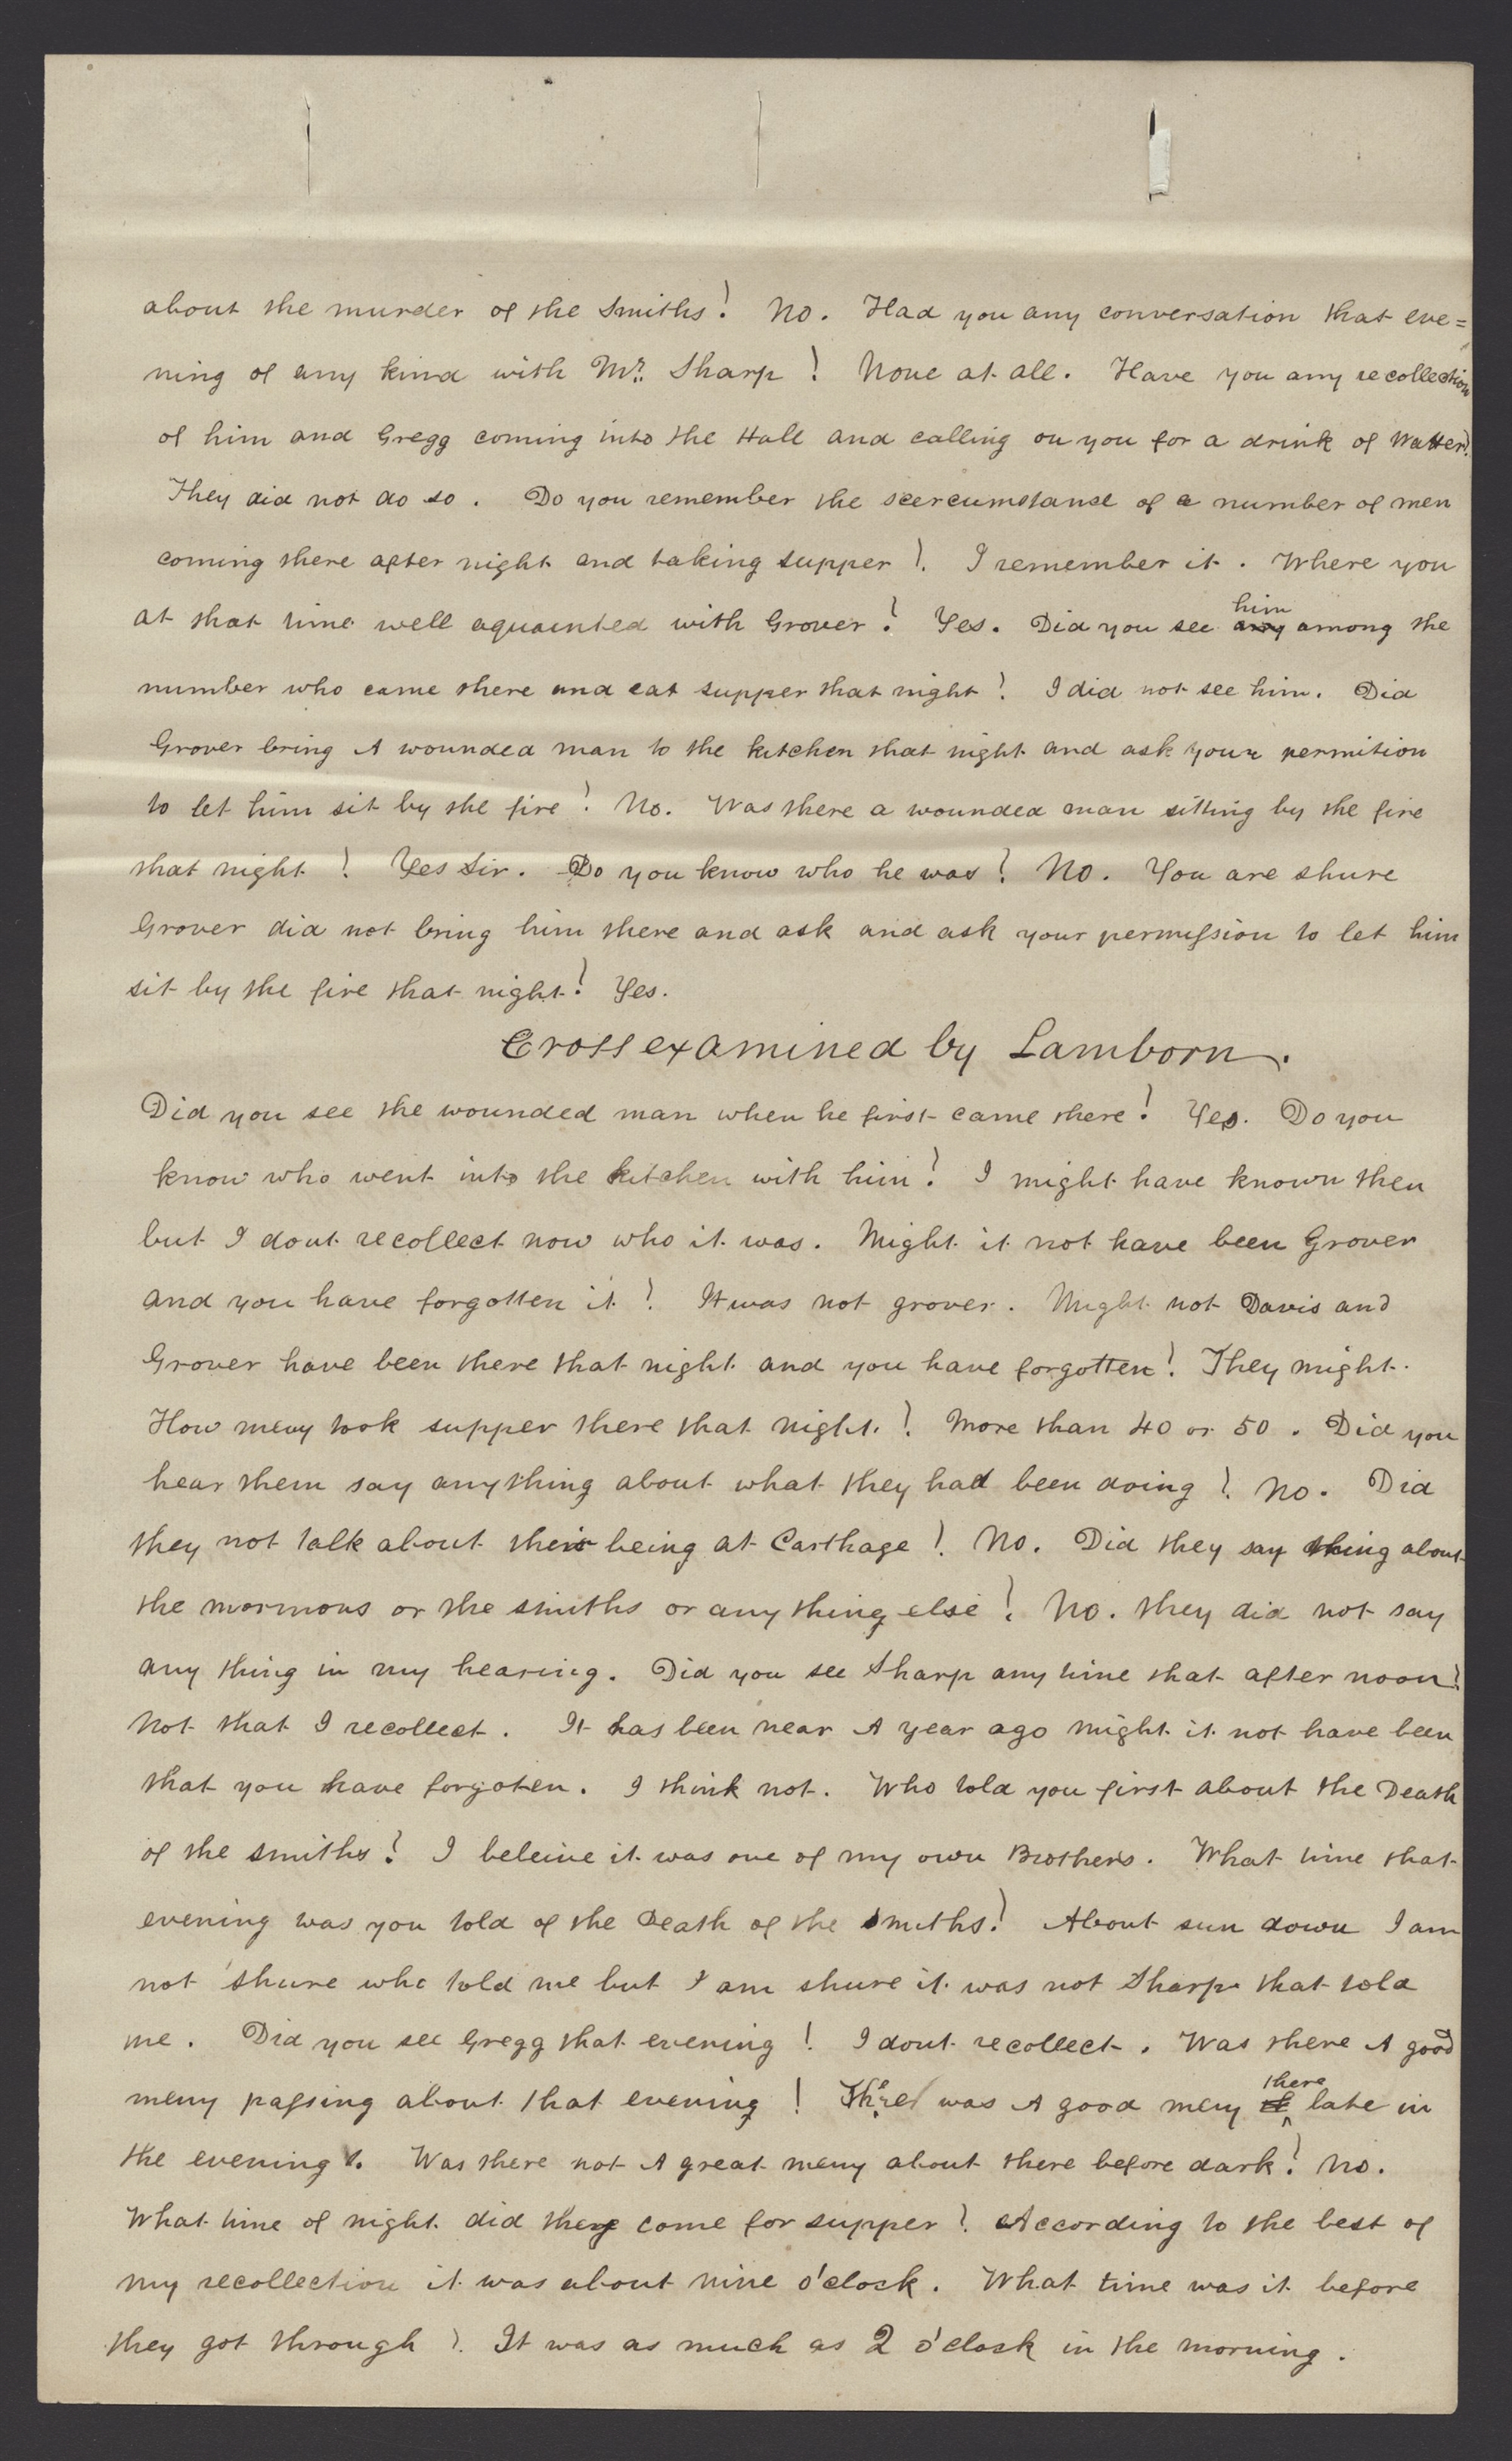 about the murder of the Smiths? No. Had you any conversation that eve=
ning of any kind with Mr. Sharp? None at all. Have you any recollection
of him and Gregg coming into the Hall and calling on you for a drink of Watter?
They did not do so. Do you remember the scercumstance of a number of men
coming there after night and taking supper? I remember it. Where you
at that time well aquainted with Grover? Yes. Did you see any him among the
number who came there and eat supper that night? I did not see him. Did
Grover bring A wounded man to the kitchen that night and ask your permition
to let him sit by the fire? No. Was there a wounded man sitting by the fire
that night? Yes Sir. Do you know who he was? No. You are shure
Grover did not bring him there and ask and ask your permission to let him
sit by the fire that night? Yes.
Cross examined by Lamborn.
Did you see the wounded man when he first came there? Yes. Do you
know who went into the kitchen with him? I might have known then
but I dont recollect now who it was. Might it not have been Grover
and you have forgotten it? It was not grover. Might not Davis and
Grover have been there that night and you have forgotten? They might.
How meny took supper there that night? More than 40 or 50. Did you
hear them say anything about what they had been doing? No. Did
they not talk about their being at Carthage? No. Did they say thing about
the mormons or the smiths or any thing else? No. they did not say
any thing in my hearing. Did you see Sharp any time that after noon?
Not that I recollect. It has been near A year ago might it not have been
that you have forgoten. I think not. Who told you first about the Death
of the smiths? I beleive it was one of my own Brothers. What time that
evening was you told of the Death of the Smiths? About sun down I am
not shure who told me but I am shure it was not Sharp that told
me. Did you see Gregg that evening? I dont recollect. Was there A good
meny passing about that evening? There was A good meny there late in
the evening. Was there not A great meny about there before dark? No.
What time of night did they come for supper? According to the best of
my recollection it was about nine o'clock. What time was it before
they got through? It was as much as 2 o'clock in the morning.